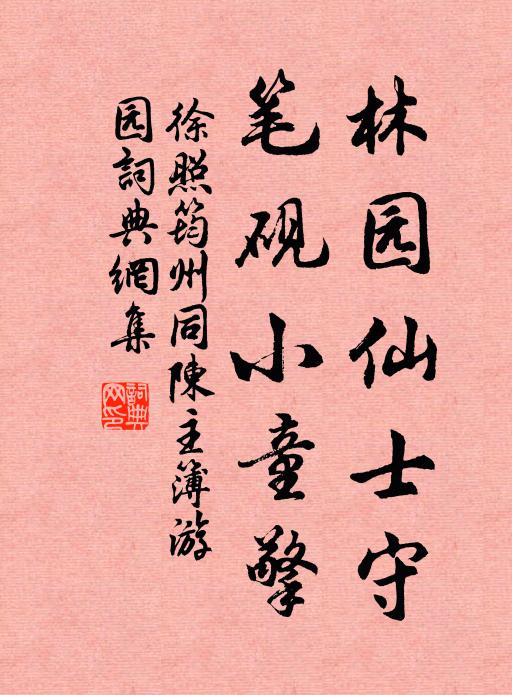 林园仙士守
笔砚小童擎
徐照筠州同陳主簿游
园詞典網集
詞典网印